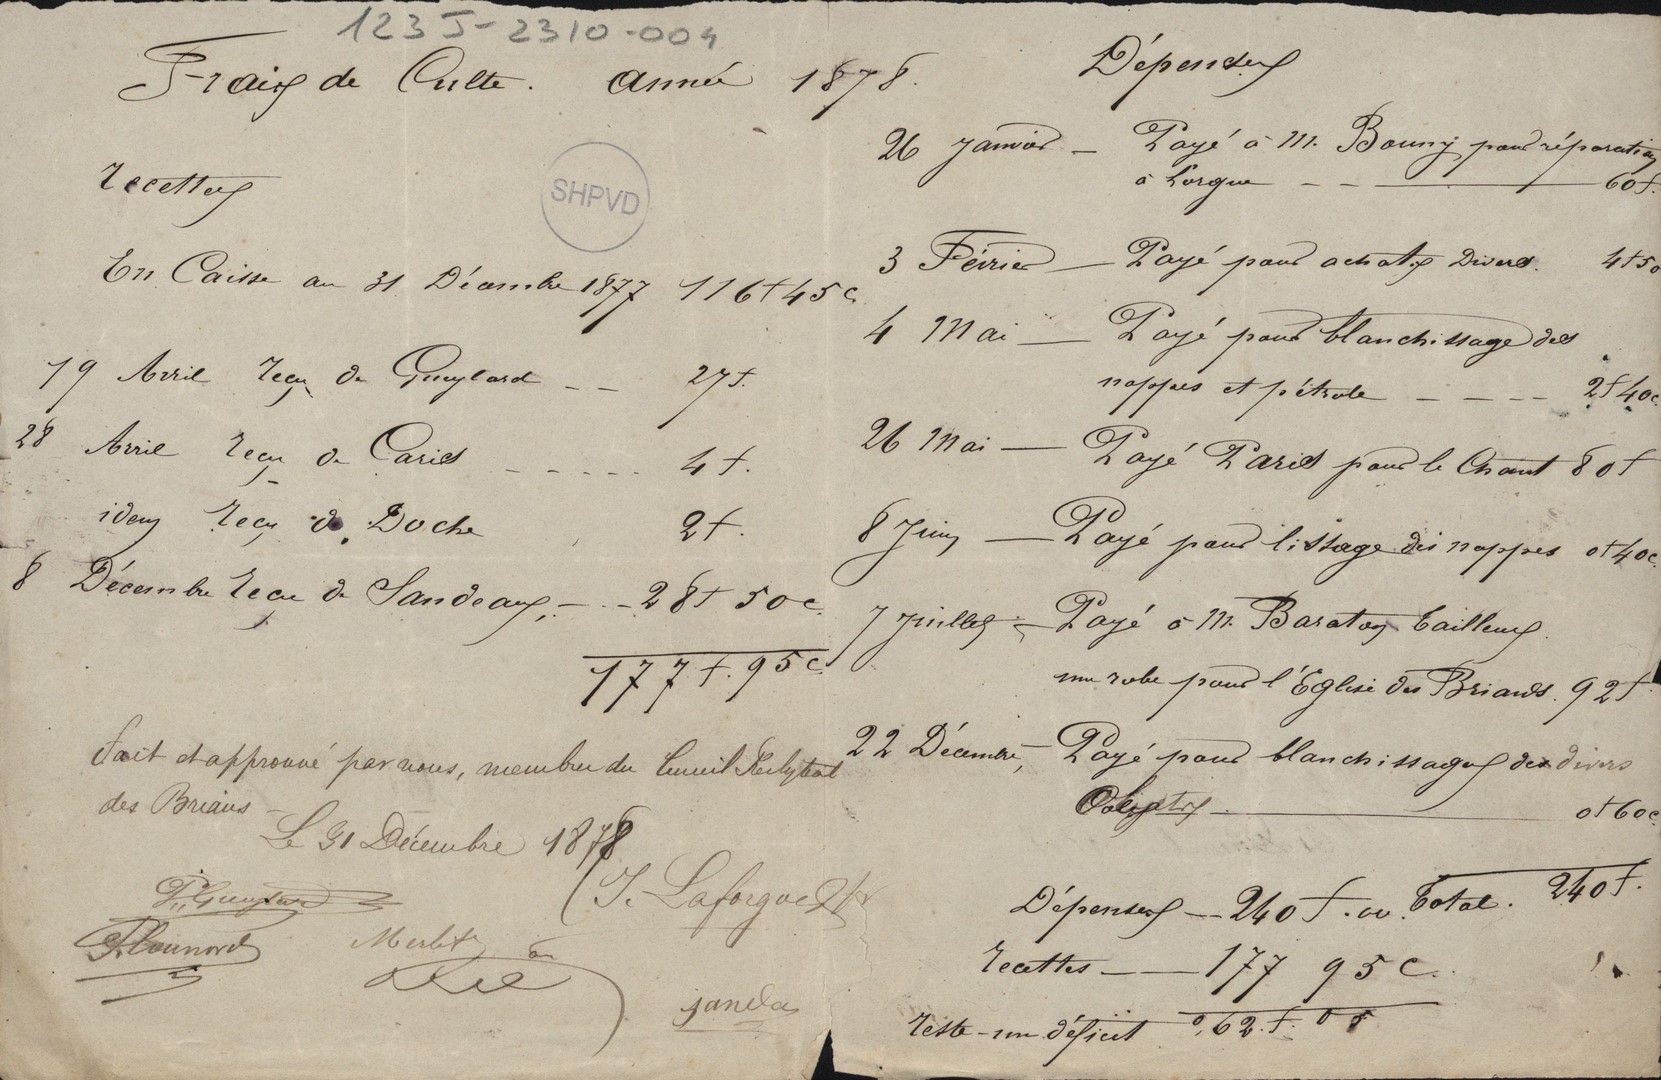 123 J-2310-004
Frais de Culte. année 1878.
SHPVD
Recettes
En Caisse au 31 Décembre 1877 116f45c
19 Avril reçu de Gueylard -- 27f.
28 Avril reçu de Caries ----- 4f.
idem reçu de Doche 2f.
8 Décembre recu de Sandeaux -- 28f 50c.
177f.95c.
fait et approuvé par nous, membres du Conseil Presbytéral
des Briaus
Le 31 Décembre 1878
J. Laforgue
P. Gueylard
Merlet
Janelas
Dépenses
26 Janvier — Payé à M. Bouny pour réparation
à l'orgue -- 60f.
3 Février — Payé pour achats Divers. 4f50
4 Mai — Payé pour blanchissage des
nappes et pétrole ---- 2f40c.
26 Mai — Payé Paris pour le Chant 80f
8 Juin — Payé pour lissage des nappes 0f40c.
7 Juillet — Payé à M. Baraton Tailleur
une robe pour l'Eglise des Briands. 92f.
22 Décembre, — Payé pour blanchissages des divers
Objets 0f60c.
Dépenses — 240f. ou Total. 240f.
recettes — 177 95c.
reste un déficit 062.f.05